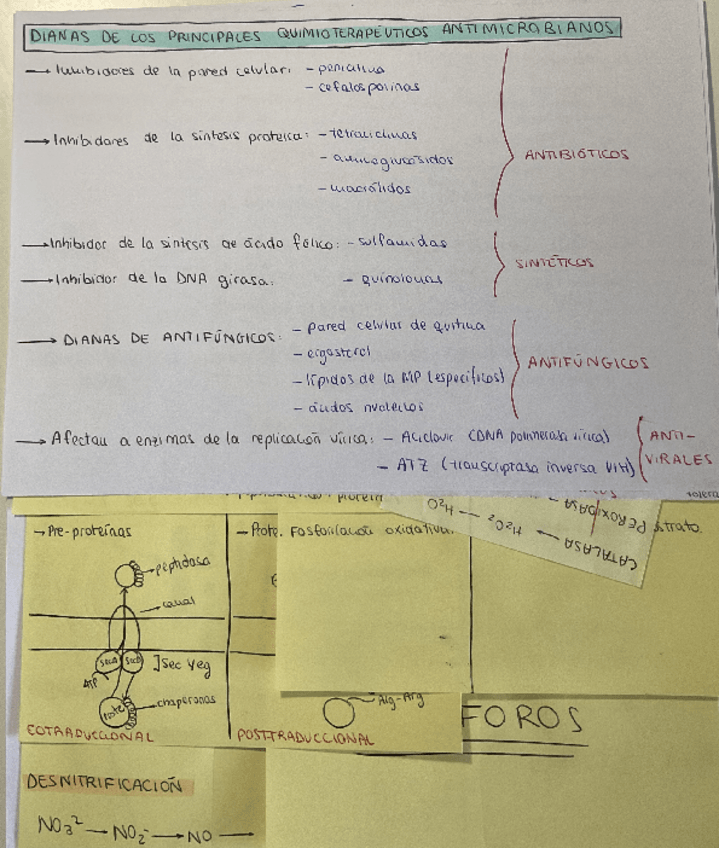 DIANAS DE LOS PRINCIPALES QUIMIOTERAPÉUTICOS ANTIMICROBIANOS
→ Inhibidores de la pared celular: - penicilina
- cefalosporinas
→ Inhibidores de la síntesis proteica: - tetraciclinas
- aminoglucósidos
- macrólidos
ANTIBIÓTICOS
→ Inhibidor de la síntesis de ácido fólico: - sulfamidas
→ Inhibidor de la DNA girasa: - quinolonas
SINTÉTICOS
→ DIANAS DE ANTIFÚNGICOS: - pared celular de quitina
- ergosterol
- lípidos de la MP (específicos)
- ácidos nucleicos
ANTIFÚNGICOS
→ Afectan a enzimas de la replicación vírica: - Aciclovir (DNA polimerasa vírica)
- ATZ (transcriptasa inversa VIH)
ANTI-
VIRALES
tolera
PEROXIDASA
strato
H2O2 → H2O
CATALASA
→ Pre-proteínas
peptidasa
canal
SecA SecB ] Sec Yeg
ATP
Prote
chaperonas
COTRADUCCIONAL
→ Prote.
POSTTRADUCCIONAL
Fosforilación oxidativa
Alg-Arg
FOROS
DESNITRIFICACIÓN
NO3² → NO2⁻ → NO →